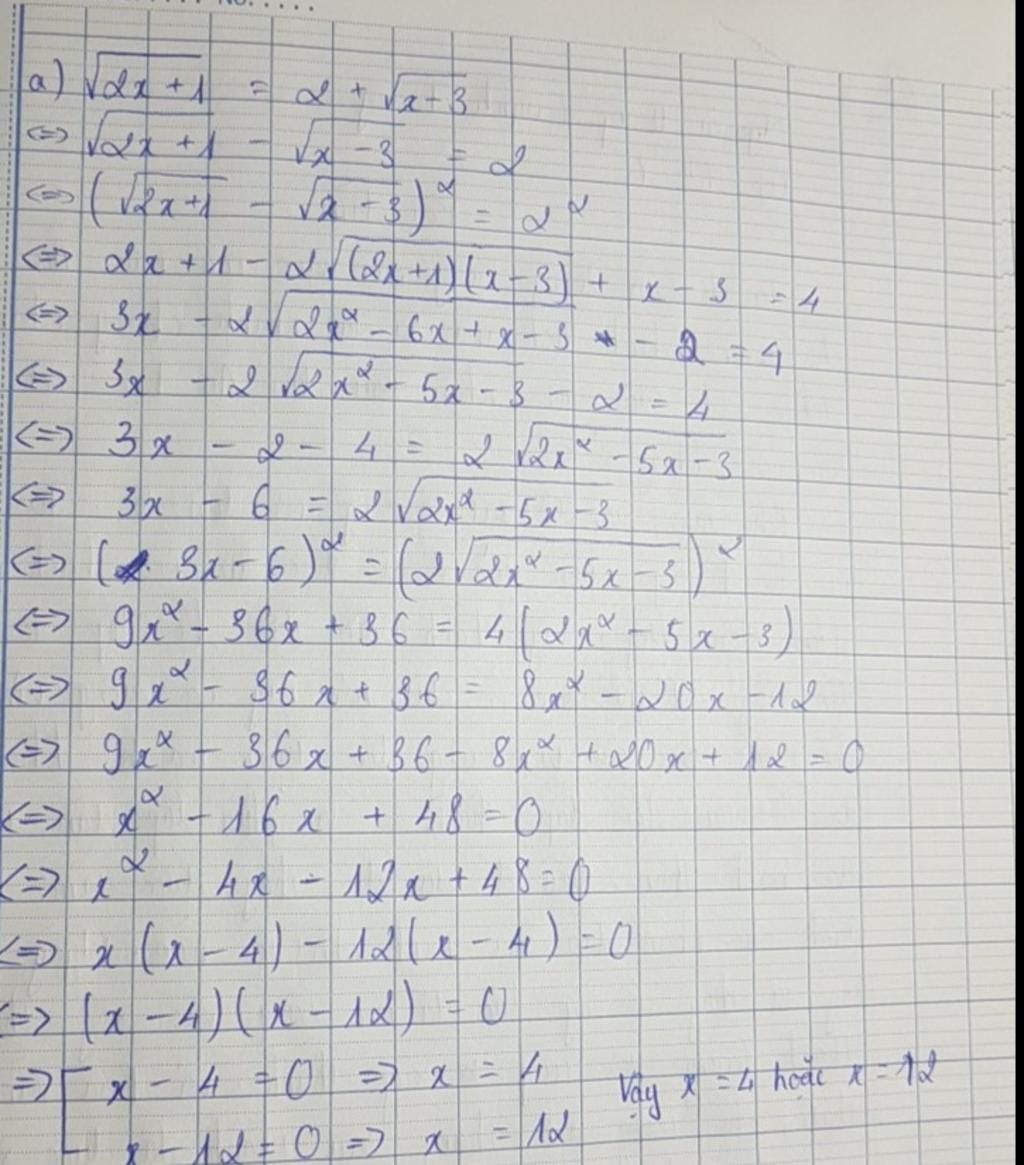 a) √(2x+1) = 2 + √(x-3)
<=> √(2x+1) - √(x-3) = 2
<=> (√(2x+1) - √(x-3))² = 2²
<=> 2x+1 - 2√((2x+1)(x-3)) + x - 3 = 4
<=> 3x - 2√(2x² - 6x + x - 3) - 2 = 4
<=> 3x - 2√(2x² - 5x - 3) - 2 = 4
<=> 3x - 2 - 4 = 2√(2x² - 5x - 3)
<=> 3x - 6 = 2√(2x² - 5x - 3)
<=> (3x - 6)² = (2√(2x² - 5x - 3))²
<=> 9x² - 36x + 36 = 4(2x² - 5x - 3)
<=> 9x² - 36x + 36 = 8x² - 20x - 12
<=> 9x² - 36x + 36 - 8x² + 20x + 12 = 0
<=> x² - 16x + 48 = 0
<=> x² - 4x - 12x + 48 = 0
<=> x(x - 4) - 12(x - 4) = 0
<=> (x - 4)(x - 12) = 0
=> [ x - 4 = 0 => x = 4
x - 12 = 0 => x = 12
Vậy x = 4 hoặc x = 12